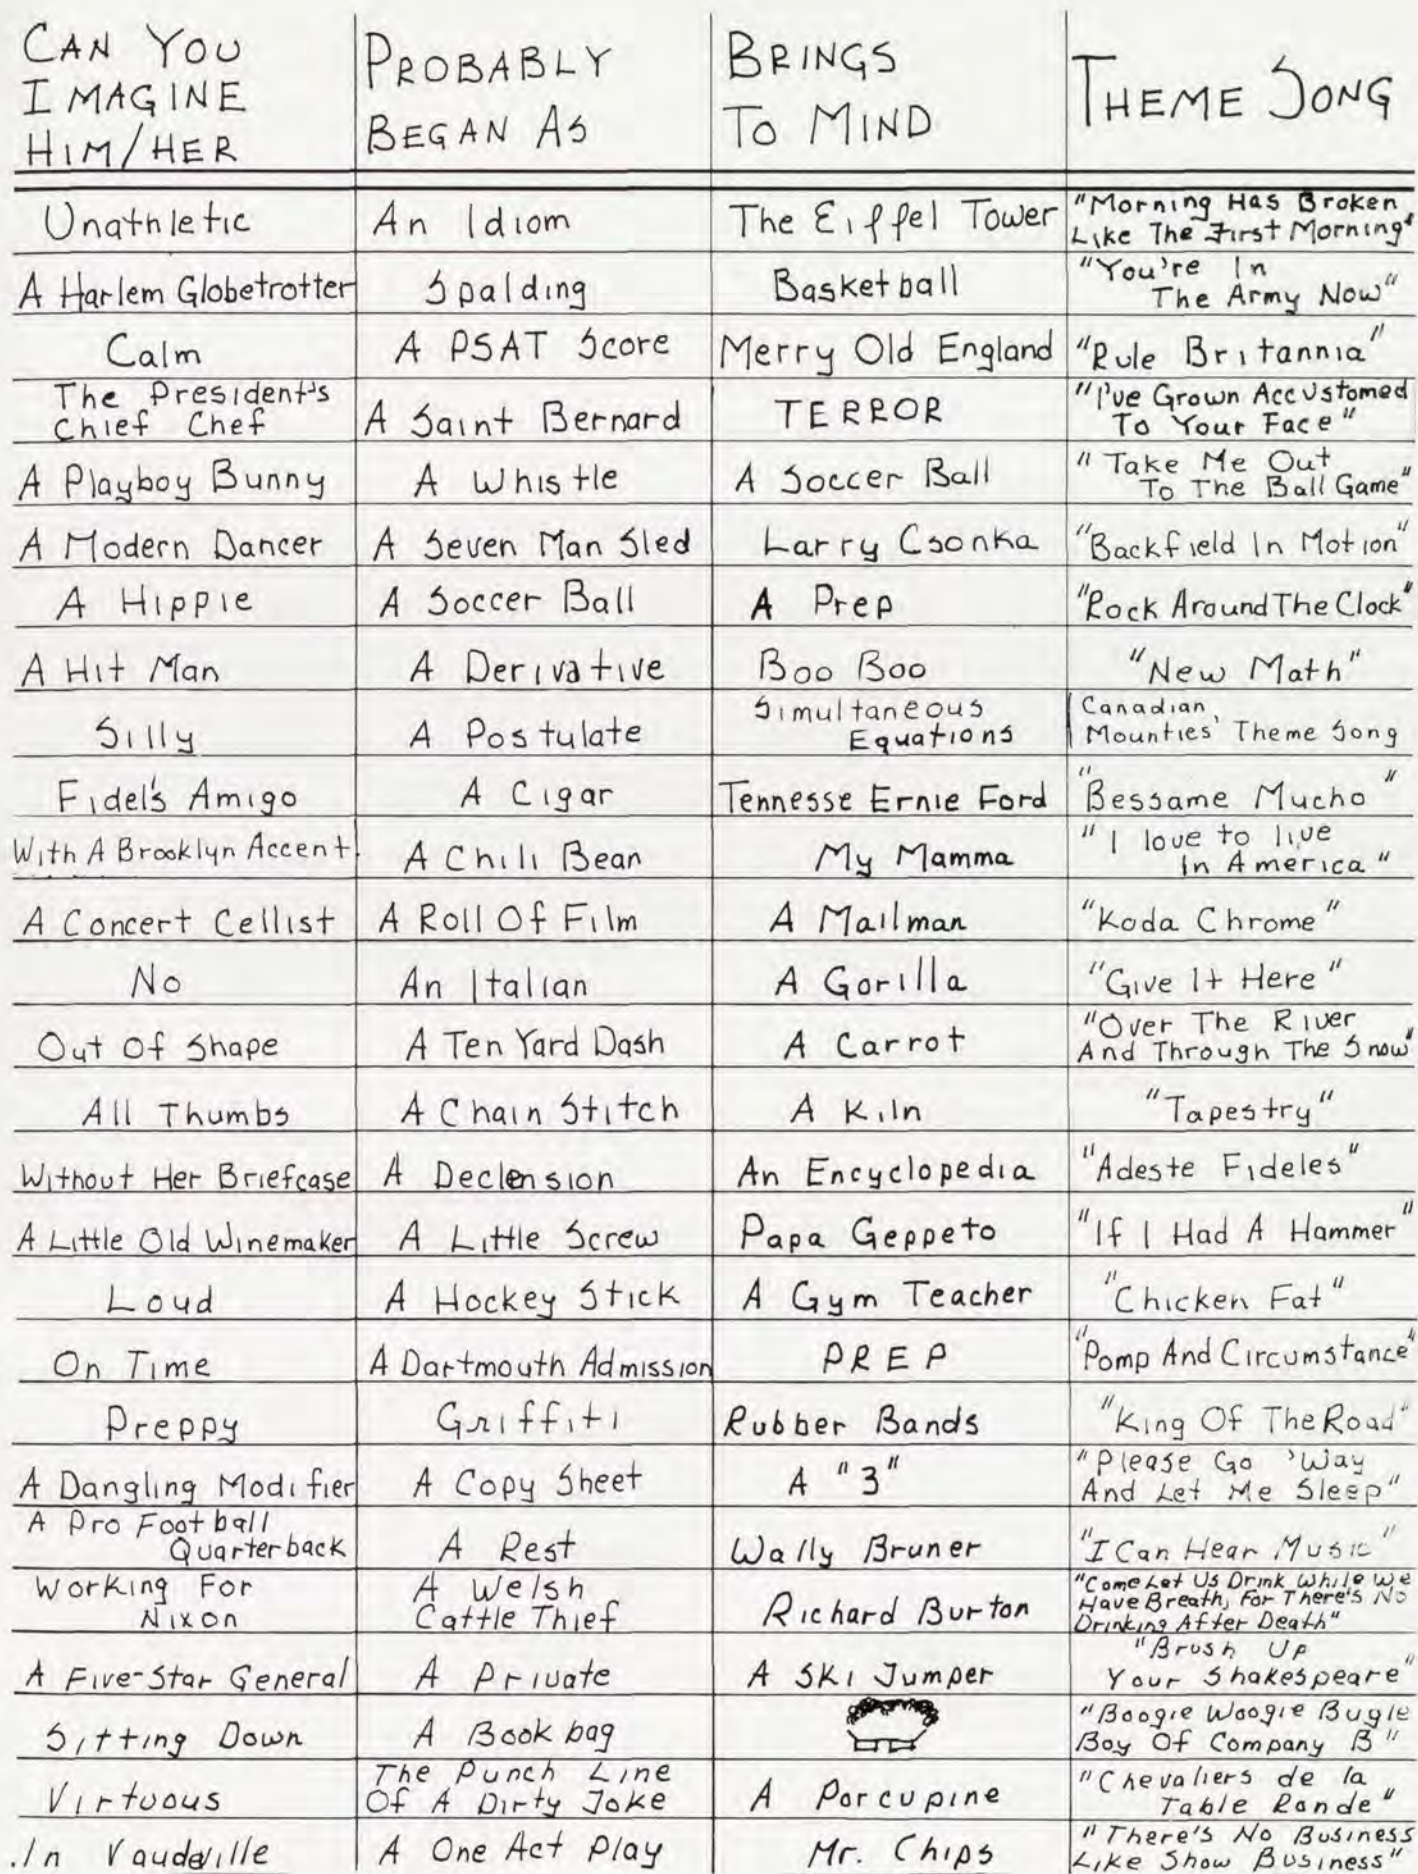 CAN YOU
IMAGINE
HIM/HER
PROBABLY
BEGAN AS
BRINGS
TO MIND
THEME SONG
Unathletic
An Idiom
The Eiffel Tower
"Morning Has Broken
Like The First Morning"
A Harlem Globetrotter
Spalding
Basketball
"You're In
The Army Now"
Calm
A PSAT Score
Merry Old England
"Rule Britannia"
The President's
Chief Chef
A Saint Bernard
TERROR
"I've Grown Accustomed
To Your Face"
A Playboy Bunny
A Whistle
A Soccer Ball
"Take Me Out
To The Ball Game"
A Modern Dancer
A Seven Man Sled
Larry Csonka
"Backfield In Motion"
A Hippie
A Soccer Ball
A Prep
"Rock Around The Clock"
A Hit Man
A Derivative
Boo Boo
"New Math"
Silly
A Postulate
Simultaneous
Equations
Canadian
Mounties' Theme Song
Fidel's Amigo
A Cigar
Tennesse Ernie Ford
"Bessame Mucho"
With A Brooklyn Accent
A Chili Bean
My Mamma
"I love to live
In America"
A Concert Cellist
A Roll Of Film
A Mailman
"Koda Chrome"
No
An Italian
A Gorilla
"Give It Here"
Out Of Shape
A Ten Yard Dash
A Carrot
"Over The River
And Through The Snow"
All Thumbs
A Chain Stitch
A Kiln
"Tapestry"
Without Her Briefcase
A Declension
An Encyclopedia
"Adeste Fideles"
A Little Old Winemaker
A Little Screw
Papa Geppeto
"If I Had A Hammer"
Loud
A Hockey Stick
A Gym Teacher
"Chicken Fat"
On Time
A Dartmouth Admission
PREP
"Pomp And Circumstance"
Preppy
Griffiti
Rubber Bands
"King Of The Road"
A Dangling Modifier
A Copy Sheet
A "3"
"Please Go 'Way
And Let Me Sleep"
A Pro Football
Quarterback
A Rest
Wally Bruner
"I Can Hear Music"
Working For
Nixon
A Welsh
Cattle Thief
Richard Burton
"Come Let Us Drink While We
Have Breath, For There's No
Drinking After Death"
A Five-Star General
A Private
A Ski Jumper
"Brush Up
Your Shakespeare"
Sitting Down
A Book bag
"Boogie Woogie Bugle
Boy Of Company B"
Virtuous
The Punch Line
Of A Dirty Joke
A Porcupine
"Chevaliers de la
Table Ronde"
In Vaudeville
A One Act Play
Mr. Chips
"There's No Business
Like Show Business"